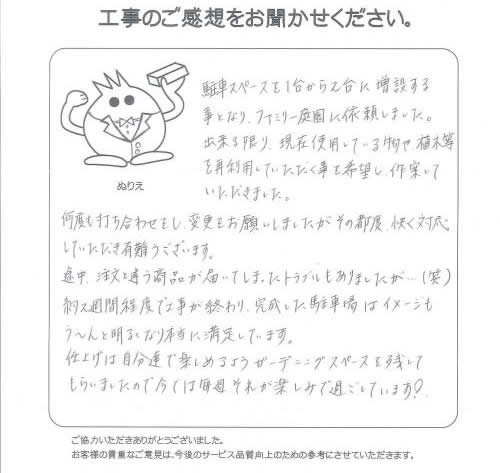 工事のご感想をお聞かせください。
駐車スペースを1台から2台に増設する
事となり、ファミリー庭園に依頼しました。
出来る限り、現在使用している物や植木等
を再利用していただく事を希望し、作案して
いただきました。
ぬりえ
何度も打ち合わせをし、変更をお願いしましたがその都度、快く対応
していただき有難うございます。
途中、注文と違う商品が届いてしまったトラブルもありましたが…(笑)
約2週間程度で工事が終わり、完成した駐車場はイメージも
う〜んと明るくなり本当に満足しています。
仕上げは自分達で楽しめるようガーデニングスペースを残して
もらいましたので今では毎週それが楽しみで過ごしています!
ご協力いただきありがとうございました。
お客様の貴重なご意見は、今後のサービス品質向上のための参考にさせていただきます。